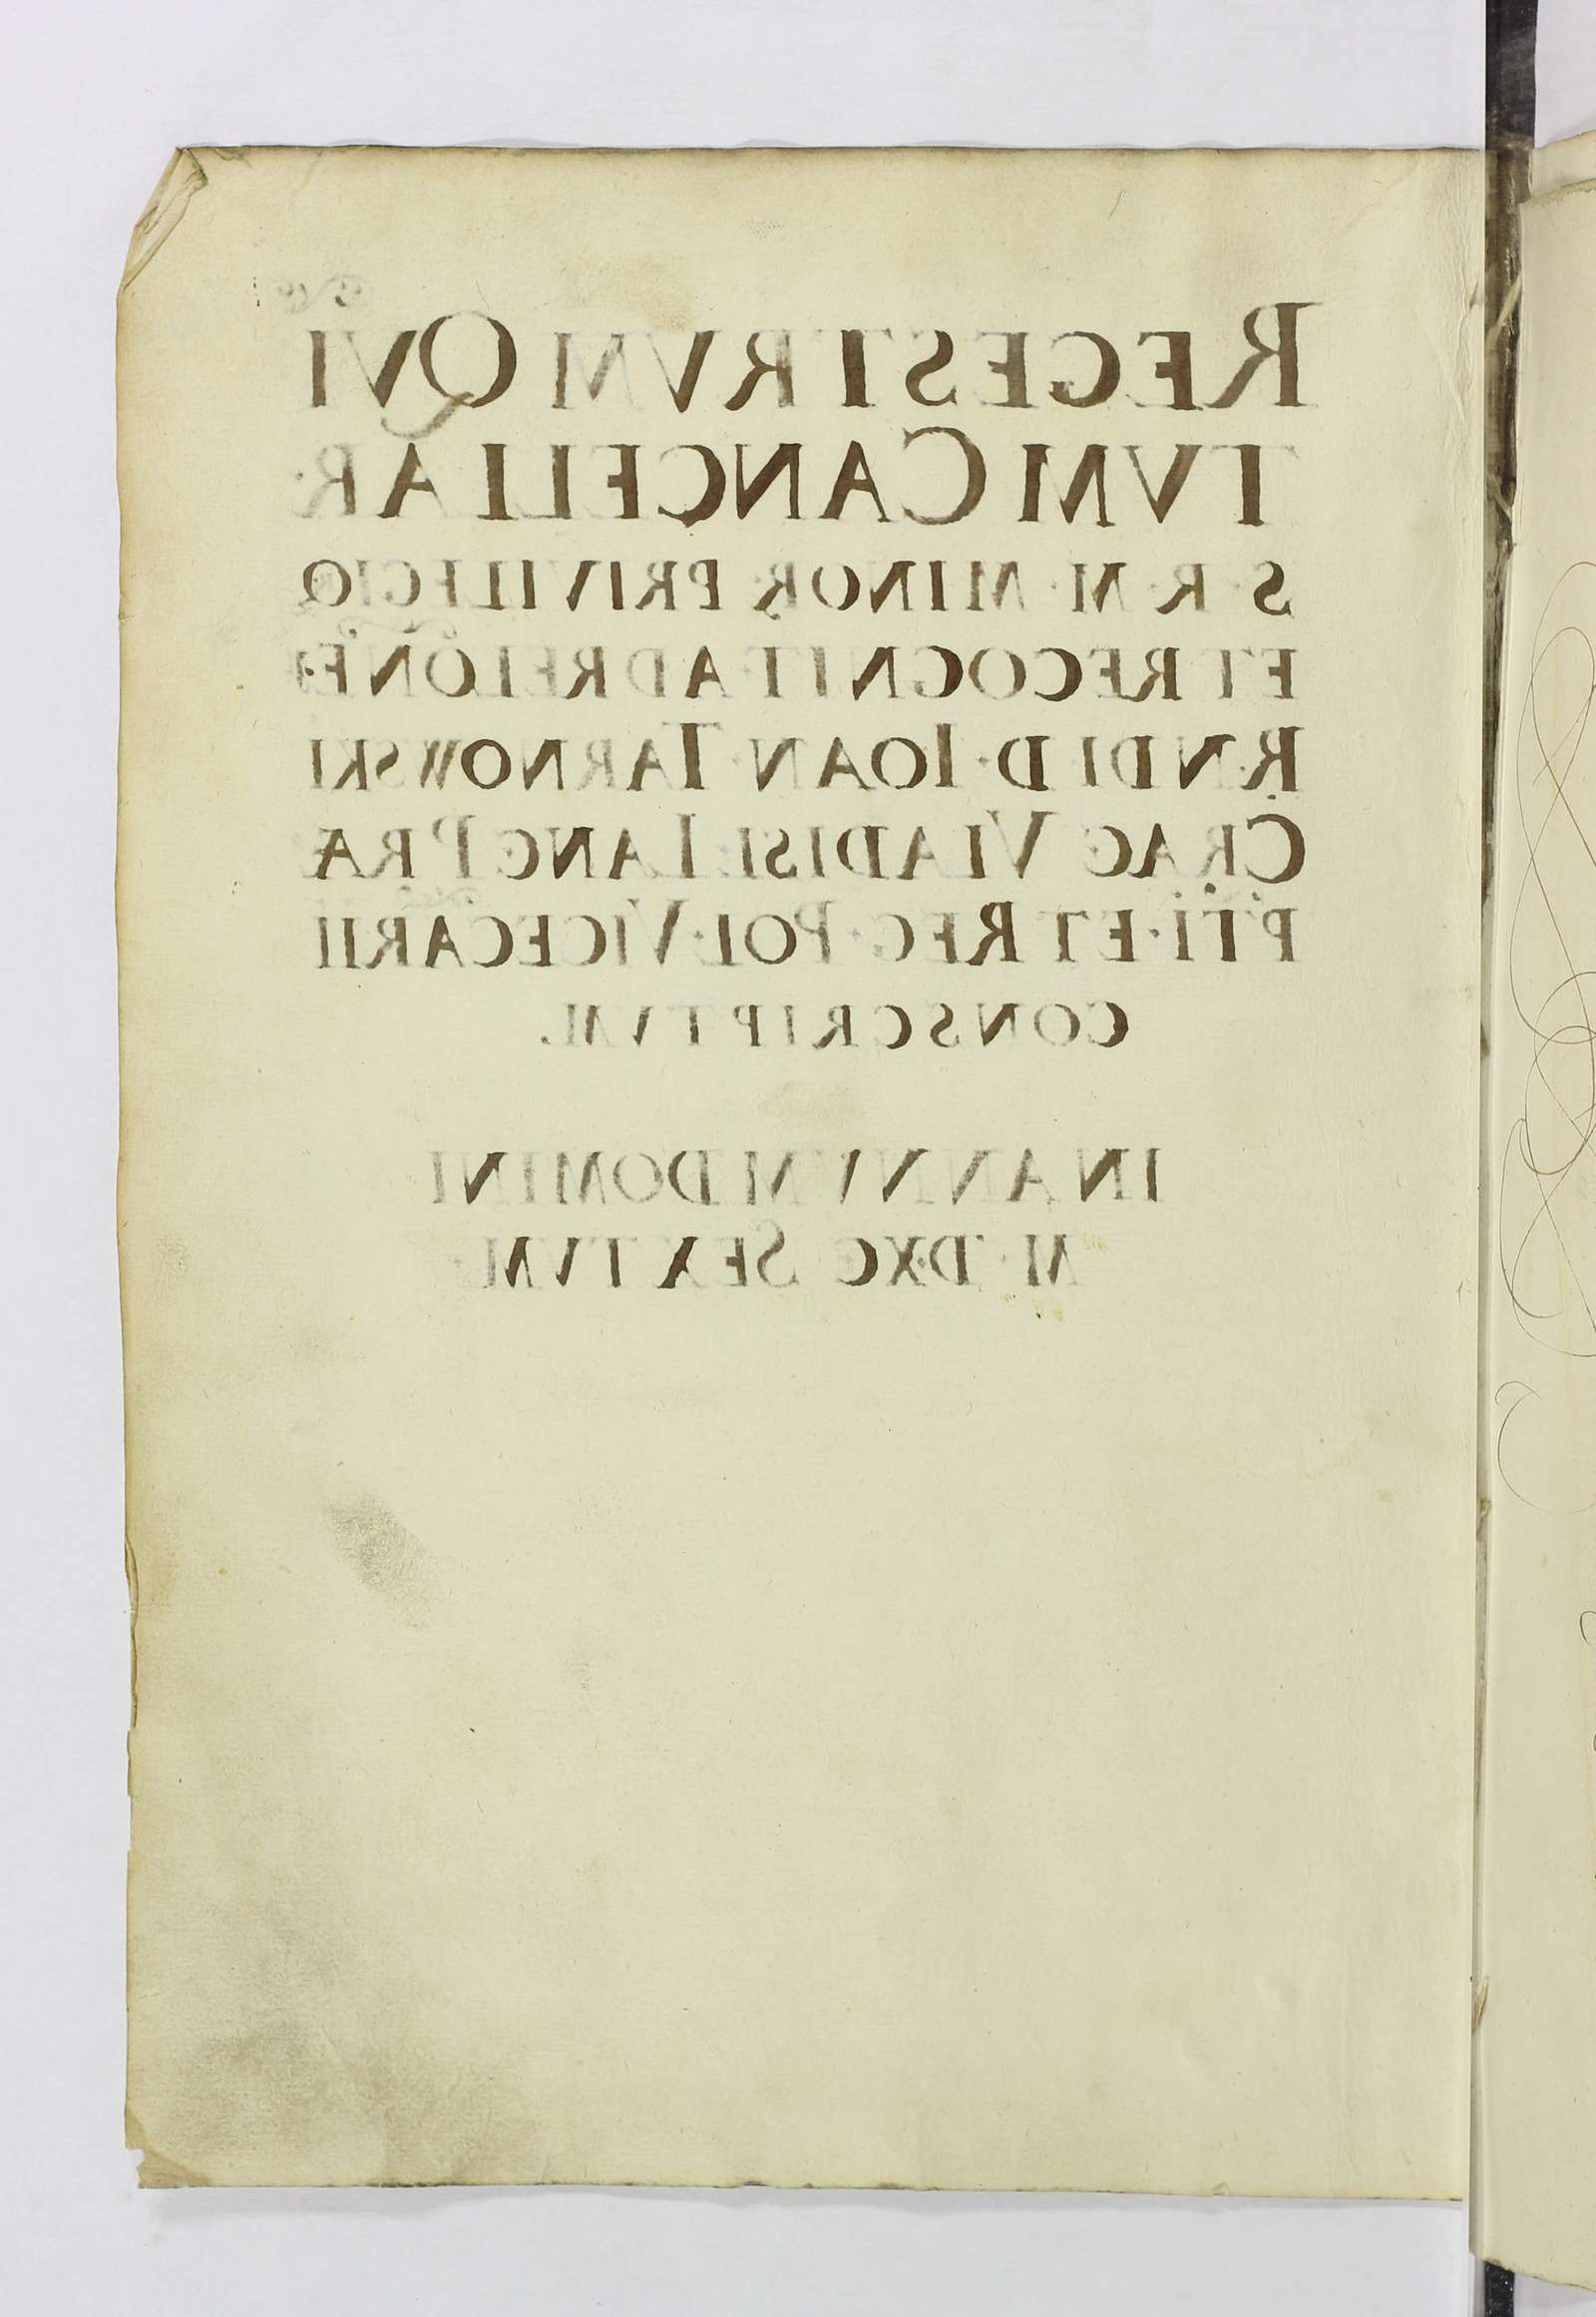 REGESTRVM QVI
TVM CANCELLAR
S·R·M·MINOR· PRIVILEGIO
ET RECOGNIT· AD RELONE
RNDI D·IOAN·TARNOWSKI
CRAC VLADISL LANC PRÆ
PTI·ET REG·POL·VICECARII
CONSCRIPTVM.
IN ANNVM DOMINI
M·DXC SEXTVM